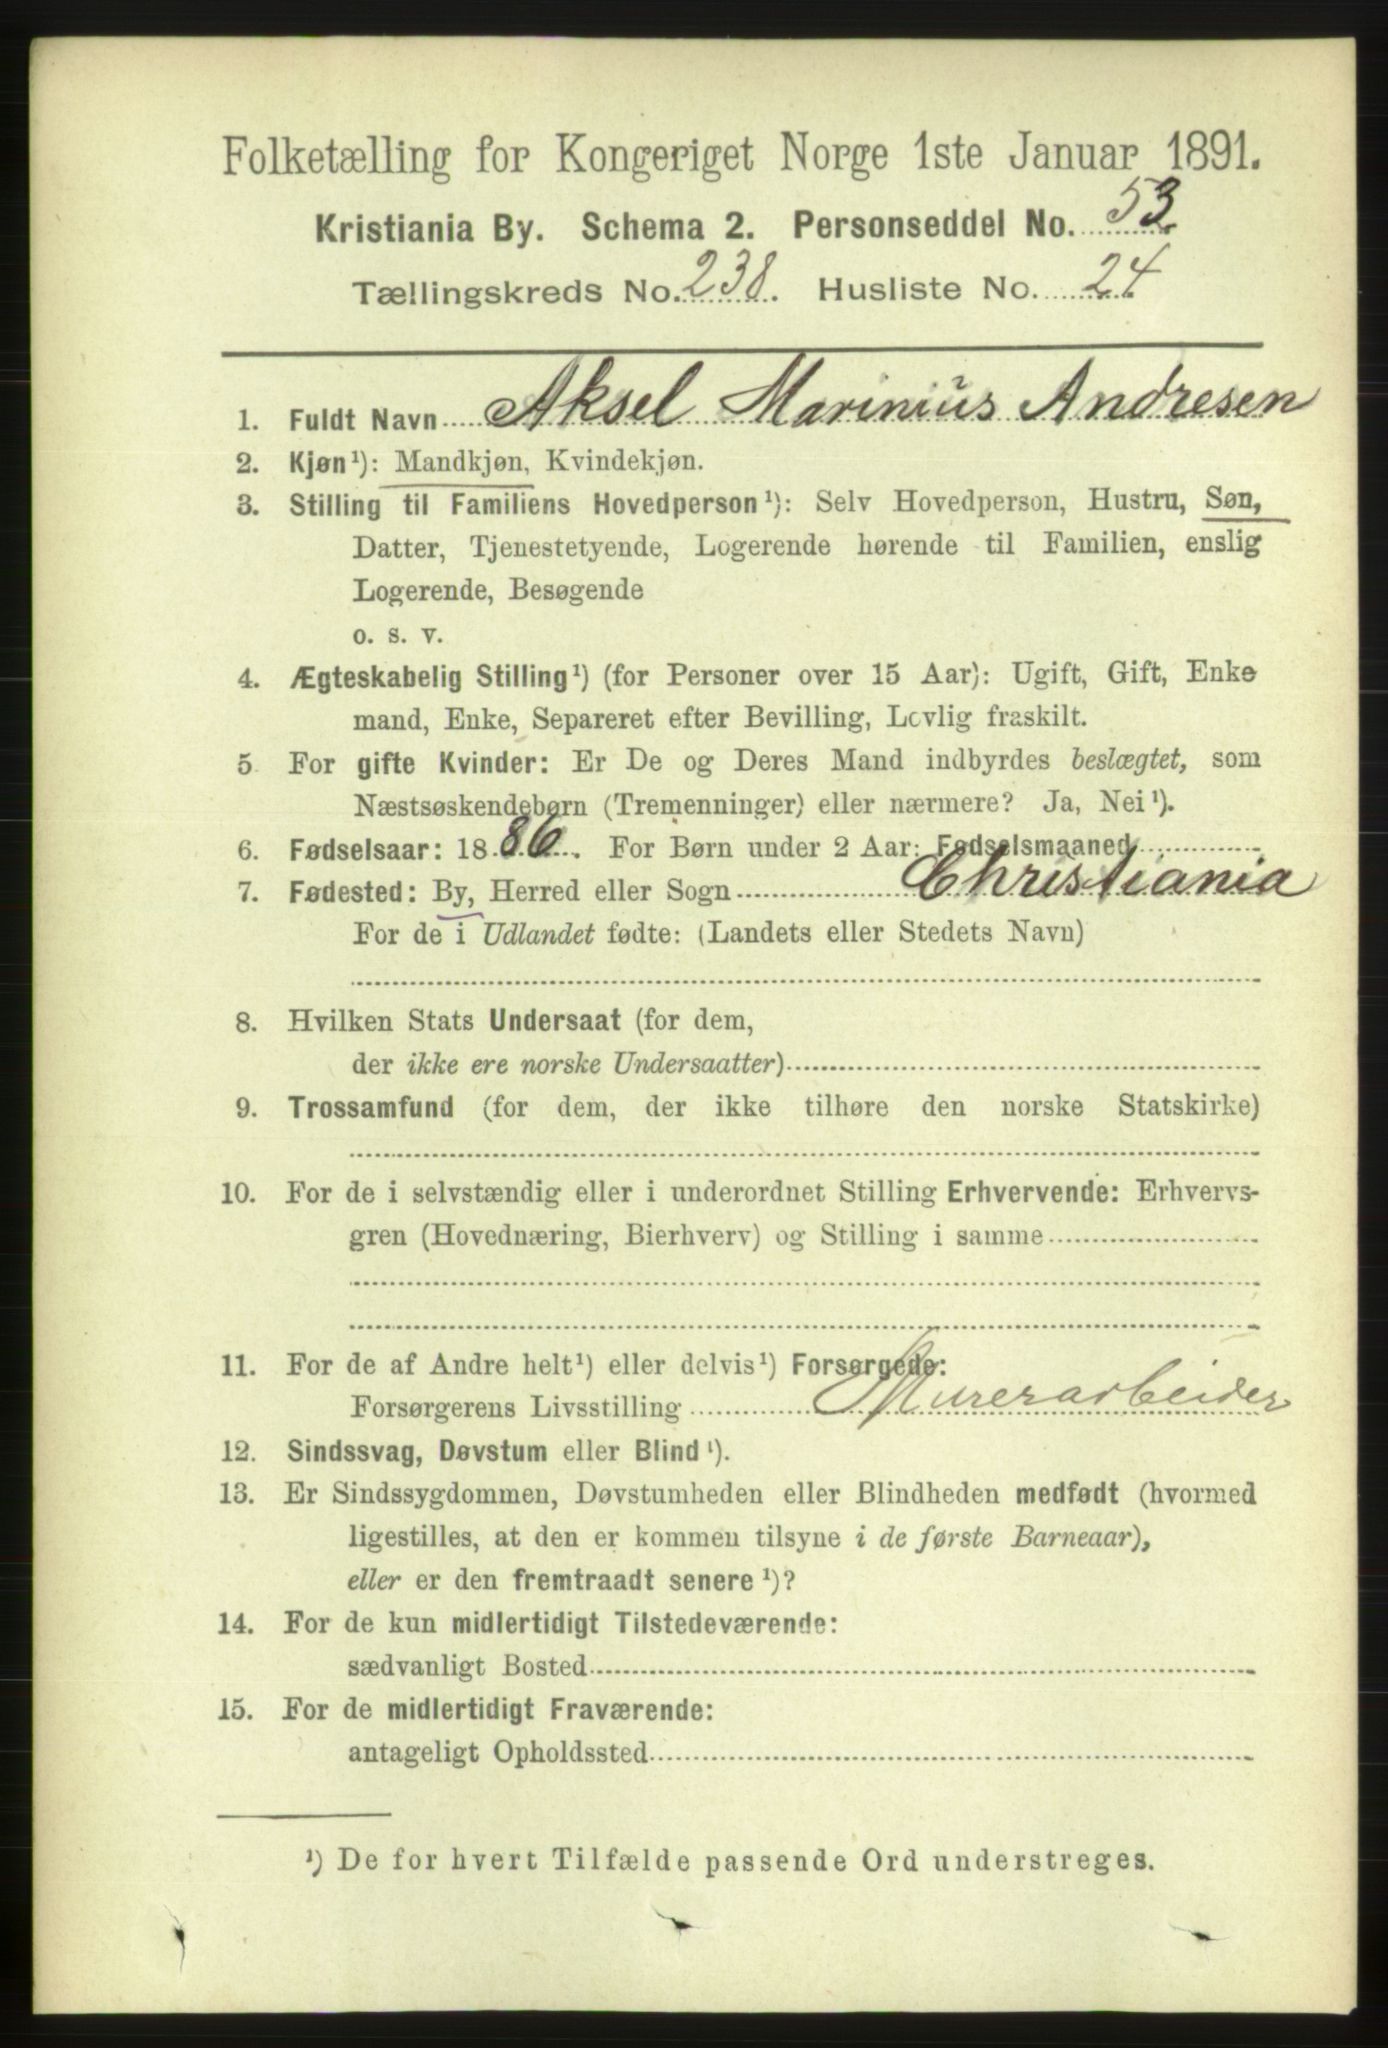 Folketælling for Kongeriget Norge 1ste Januar 1891.
Kristiania By. Schema 2. Personseddel No. 53.
Tællingskreds No. 238. Husliste No. 24
1. Fuldt Navn Aksel Marinius Andresen
2. Kjøn¹): Mandkjøn, Kvindekjøn.
3. Stilling til Familiens Hovedperson¹): Selv Hovedperson, Hustru, Søn,
Datter, Tjenestetyende, Logerende hørende til Familien, enslig
Logerende, Besøgende
o. s. v.
4. Ægteskabelig Stilling¹) (for Personer over 15 Aar): Ugift, Gift, Enke
mand, Enke, Separeret efter Bevilling, Lovlig fraskilt.
5 For gifte Kvinder: Er De og Deres Mand indbyrdes beslægtet, som
Næstsøskendebørn (Tremenninger) eller nærmere? Ja, Nei¹).
6. Fødselsaar: 1886. For Børn under 2 Aar: Fødselsmaaned
7. Fødested: By, Herred eller Sogn Christiania
For de i Udlandet fødte: (Landets eller Stedets Navn)
8. Hvilken Stats Undersaat (for dem,
der ikke ere norske Undersaatter)
9. Trossamfund (for dem, der ikke tilhøre den norske Statskirke)
10. For de i selvstændig eller i underordnet Stilling Erhvervende: Erhvervs-
gren (Hovednæring, Bierhverv) og Stilling i samme
11. For de af Andre helt¹) eller delvis¹) Forsørgede:
Forsørgerens Livsstilling Murerarbeider
12. Sindssvag, Døvstum eller Blind¹).
13. Er Sindssygdommen, Døvstumheden eller Blindheden medfødt (hvormed
ligestilles, at den er kommen tilsyne i de første Barneaar),
eller er den fremtraadt senere¹)?
14. For de kun midlertidigt Tilstedeværende:
sædvanligt Bosted
15. For de midlertidigt Fraværende:
antageligt Opholdssted
¹) De for hvert Tilfælde passende Ord understreges.